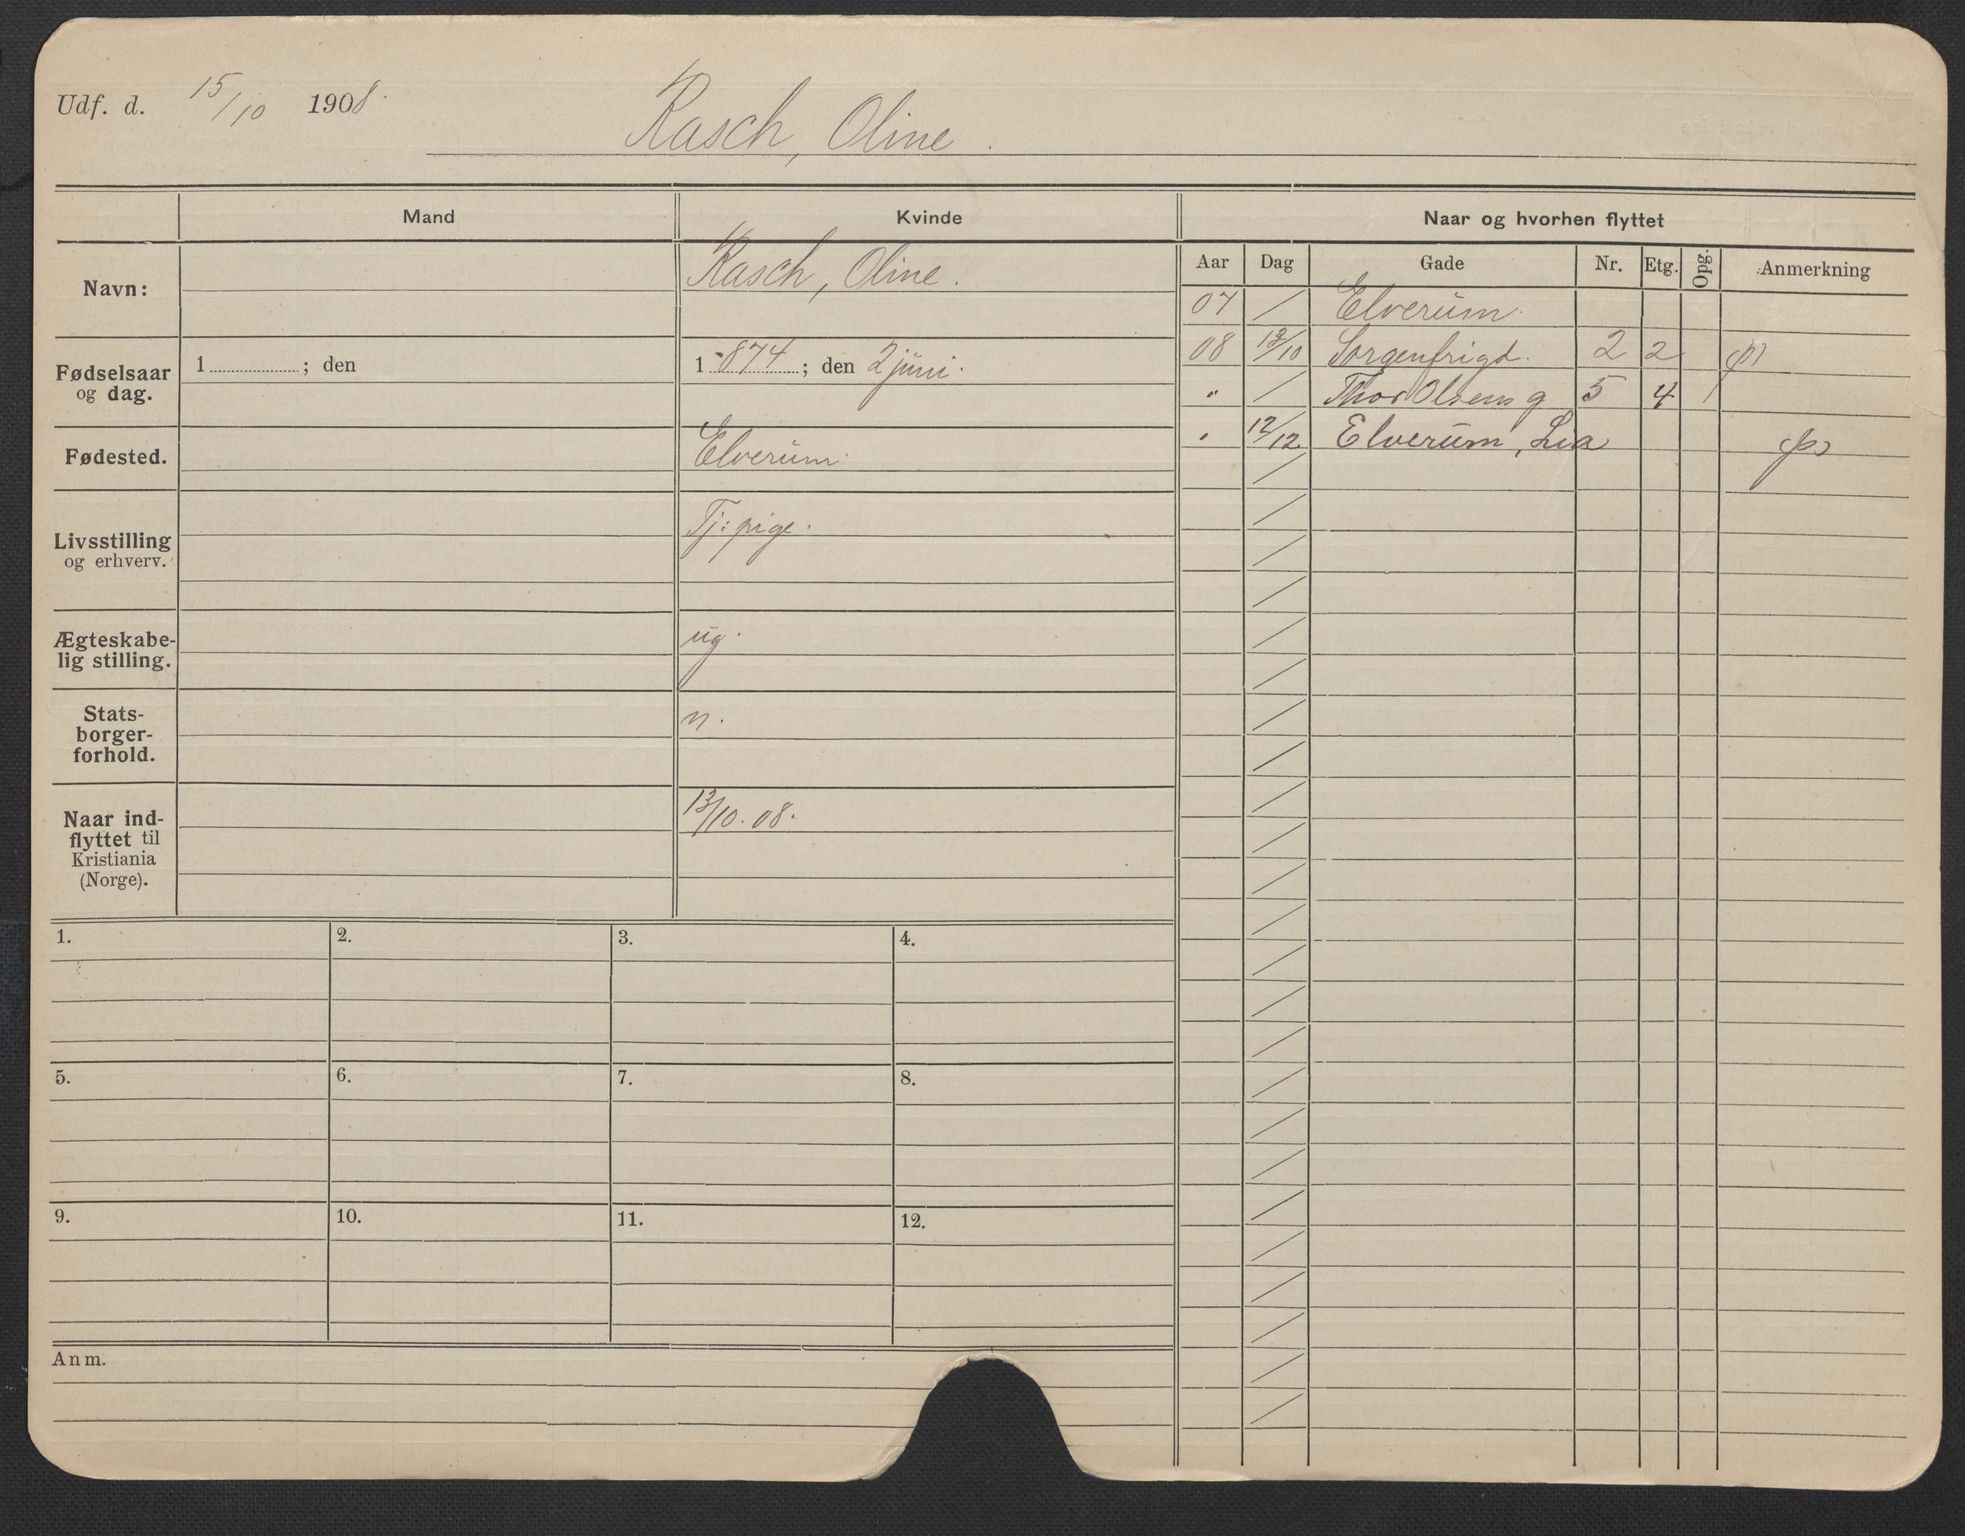 Udf. d. 15/10 1908.
Rasch, Oline.
Mand
Kvinde
Naar og hvorhen flyttet
Navn:
Rasch, Oline.
Fødselsaar og dag.
1 ; den
1 874 ; den 2 juni.
Fødested.
Elverum.
Livsstilling og erhverv.
Tj: pige.
Ægteskabe-
lig stilling.
ug.
Stats-
borger-
forhold.
n.
Naar ind-
flyttet til
Kristiania
(Norge).
13/10. 08.
Aar Dag Gade Nr. Etg. Opg. Anmerkning
07 / Elverum.
08 13/10 Sorgenfrigd. 2 2 (p)
" / Thor Olsens g 5 4 /
" 12/12 Elverum, Lia (p)
1. 2. 3. 4.
5. 6. 7. 8.
9. 10. 11. 12.
Anm.